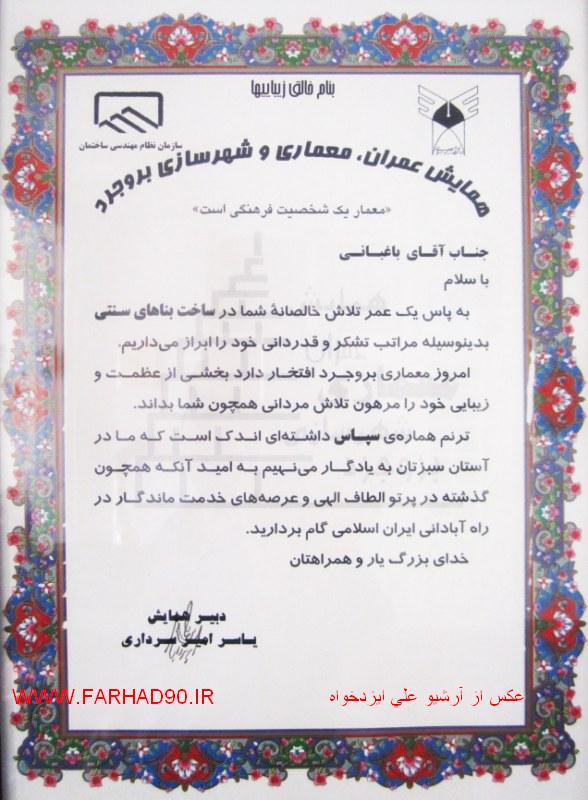 بنام خالق زیباییها
سازمان نظام مهندسی ساختمان
همایش عمران، معماری و شهرسازی بروجرد
«معمار یک شخصیت فرهنگی است»
جناب آقای باغبانی
با سلام
به پاس یک عمر تلاش خالصانهٔ شما در ساخت بناهای سنتی
بدینوسیله مراتب تشکر و قدردانی خود را ابراز می‌داریم.
امروز معماری بروجرد افتخار دارد بخشی از عظمت و
زیبایی خود را مرهون تلاش مردانی همچون شما بداند.
ترنم هماره‌ی سپاس داشته‌ای اندک است که ما در
آستان سبزتان به یادگار می‌نهیم به امید آنکه همچون
گذشته در پرتو الطاف الهی و عرصه‌های خدمت ماندگار در
راه آبادانی ایران اسلامی گام بردارید.
خدای بزرگ یار و همراهتان
دبیر همایش
یاسر امیر سرداری
عکس از آرشیو علي ایزدخواه
WWW.FARHAD90.IR
همایش
عمران
معماری
شهرسازی
بروجرد